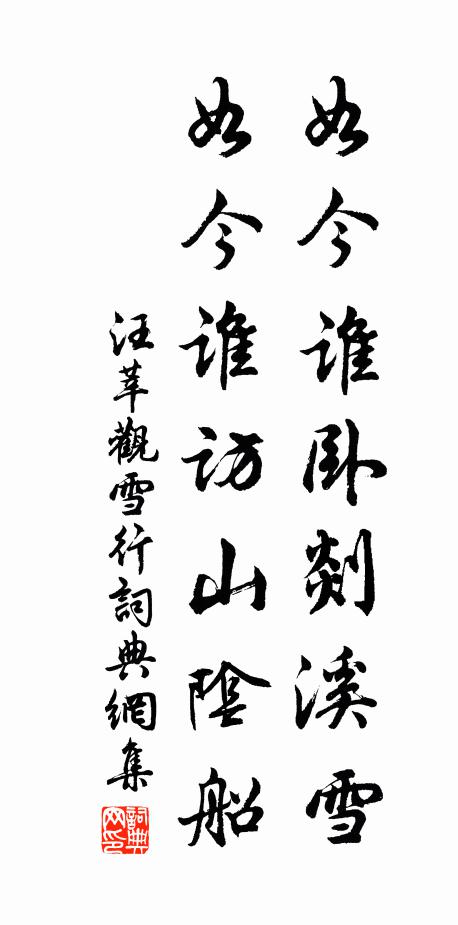 如今誰卧剡溪雪
如今誰訪山陰船
汪莘觀雪行詞典網集
詞典
网印